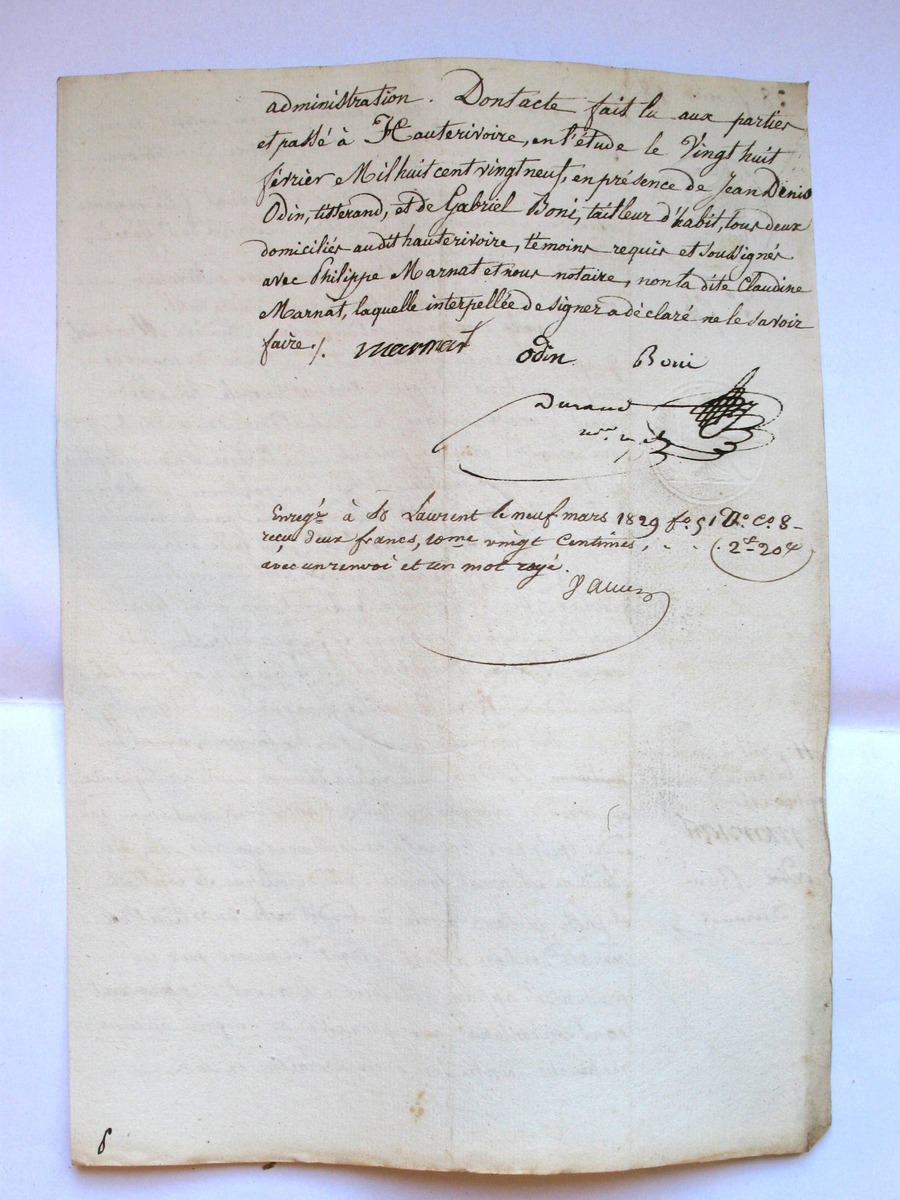 administration. Dont acte fait lu aux parties
et passé à Hauterivoire, en l'étude le Vingt huit
février Mil huit cent vingt neuf, en présence de Jean Denis
Odin, tisserand, et de Gabriel Boni, tailleur d'habit, tous deux
domiciliés audit hauterivoire, témoins requis et soussignés
avec Philippe Marnat et nous notaire, non la dite Claudine
Marnat, laquelle interpellée de signer a déclaré ne le savoir
faire./.
marnat odin Boni
Durand
Enregé à St Laurent le neuf mars 1829 fo 51 Vo Co 8 -
reçu deux francs, 10me vingt Centimes, . . 2f 20c
avec un renvoi et un mot rayé.
8